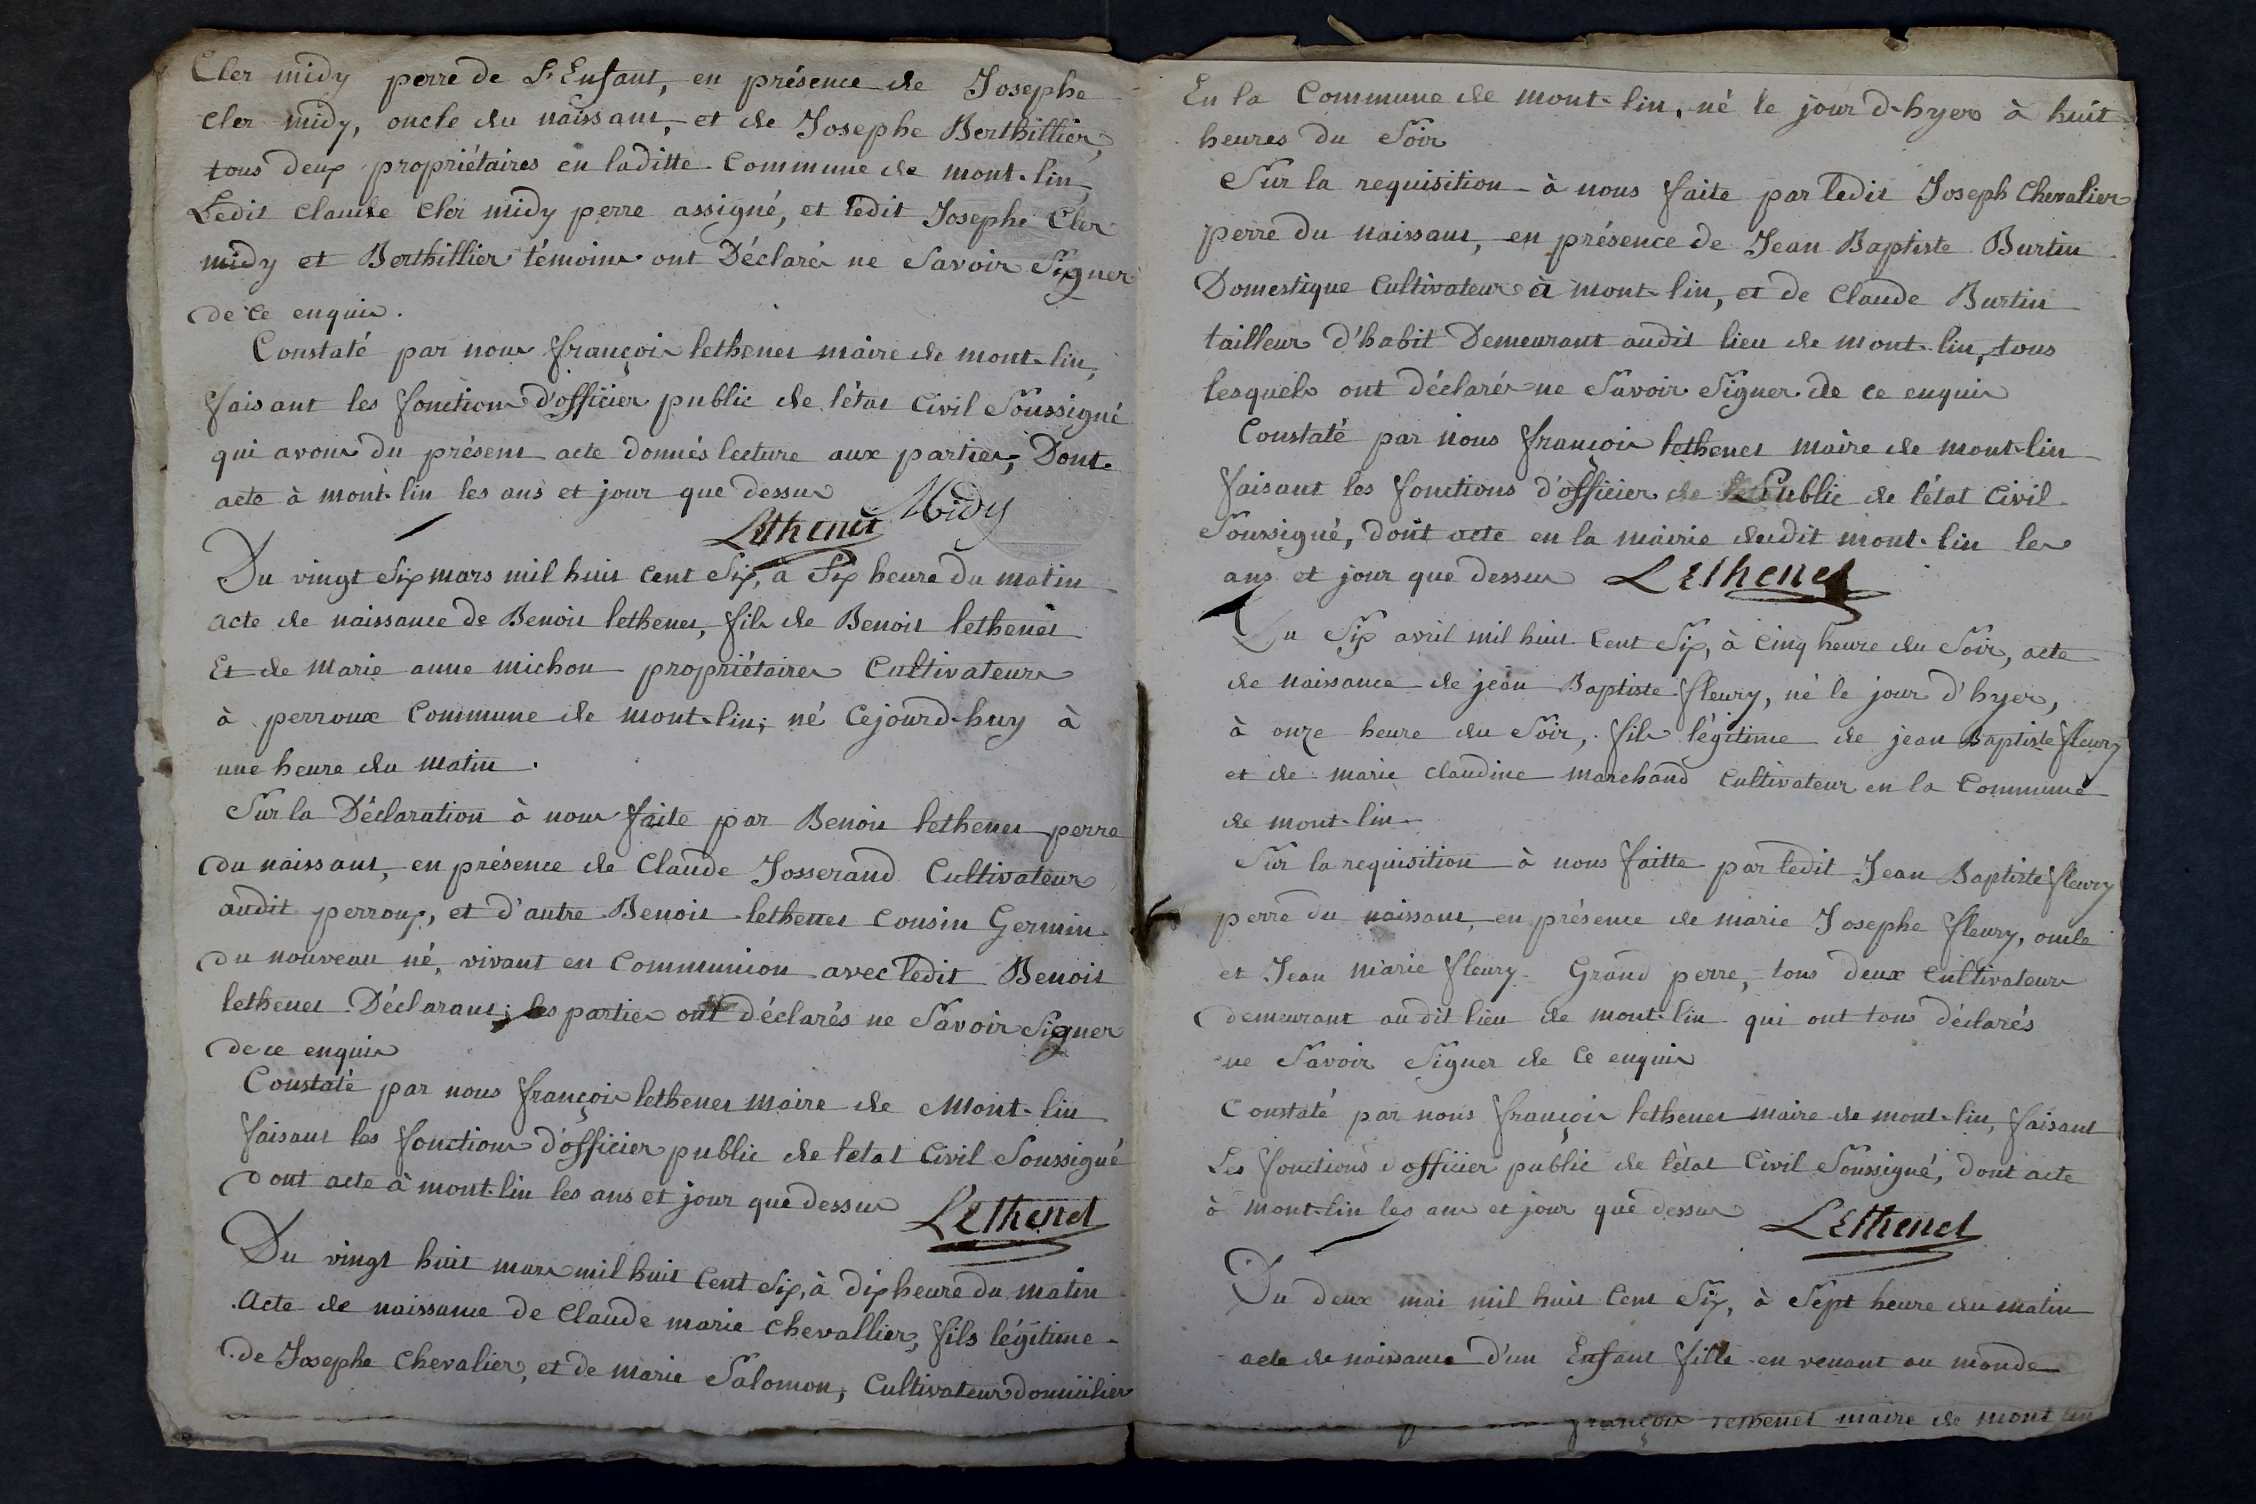 Cler midy perre de L'Enfant, en présence de Josephe
cler midy, oncle du naissant, et de Josephe Berthillier,
tous deux propriétaires en laditte Commune de mont-lin,
Ledit claude cler midy perre assigné, et ledit Josephe Cler
midy et Berthillier témoins ont Déclarés ne Savoir Signer
de ce enquis.
Constaté par nous françois lethenet maire de mont-lin,
faisant les fonctions d'officier public de l'état Civil Soussigné
qui avons du présent acte donnés lecture aux parties, Dont
acte à mont-lin les ans et jour que dessus
Midy
Lethenet
Du vingt Six mars mil huit Cent Six, à Six heure du matin
acte de naissance de Benoit lethenet, fils de Benoit lethenet
Et de Marie anne michon propriétaires Cultivateurs
à perroux Commune de mont-lin; né Cejourd-huy à
une heure du matin.
Sur la Déclaration à nous faite par Benoit lethenet perre
du naissant, en présence de Claude Josserand Cultivateur
audit perroux, et d'autre Benoit lethenet Cousin Germin
du nouveau né, vivant en Communion avec ledit Benoit
lethenet Déclarant; les parties ont déclarés ne Savoir Signer
de ce enquis
Constaté par nous françois lethenet maire de Mont-lin
faisant les fonctions d'officier public de letat Civil Soussigné
dont acte à mont-lin les ans et jour que dessus
LEthenet
Du vingt huit mars mil huit Cent Six, à dix heure du matin
Acte de naissance de Claude marie chevallier, fils légitime
de Josephe chevalier, et de marie Salomon, Cultivateur domicilier
En la Commune de mont-lin, né le jour d-hyer à huit
heures du Soir
Sur la requisition à nous faite par ledit Joseph Chevalier
perre du naissant, en présence de Jean Baptiste Burtin
Domestique Cultivateur à mont-lin, et de Claude Burtin
tailleur d'habit Demeurant audit lieu de mont-lin, tous
lesquels ont déclarés ne Savoir Signer de ce enquis
Constaté par nous françois lethenet maire de mont-lin
faisant les fonctions d'officier de Public de l'état Civil
Soussigné, dont acte en la mairie dudit mont-lin les
ans et jour que dessus
LEthenet
Du Six avril mil huit Cent Six, à Cinq heure du Soir, acte
de naissance de jean Baptiste fleury, né le jour d'hyer,
à onze heure du Soir, fils légitime de jean Baptiste fleury
et de marie claudine marchand Cultivateur en la Commune
de mont-lin
Sur la requisition à nous faitte par ledit Jean Baptiste fleury
perre du naissant, en présence de marie Josephe fleury, oncle
et Jean Marie fleury Grand perre, tous deux Cultivateurs
demeurant audit lieu de mont-lin qui ont tous déclarés
ne Savoir Signer de Ce enquis
Constaté par nous françois lethenet maire de mont-lin, faisant
Les fonctions d officier public de l'état Civil Soussigné, dont acte
à mont-lin les ans et jour que dessus
LEthenet
Du deux mai mil huit Cent Six, à Sept heure du matin
acte de naissance d'un Enfant fille en venant au monde
françois lethenet maire de mont lin